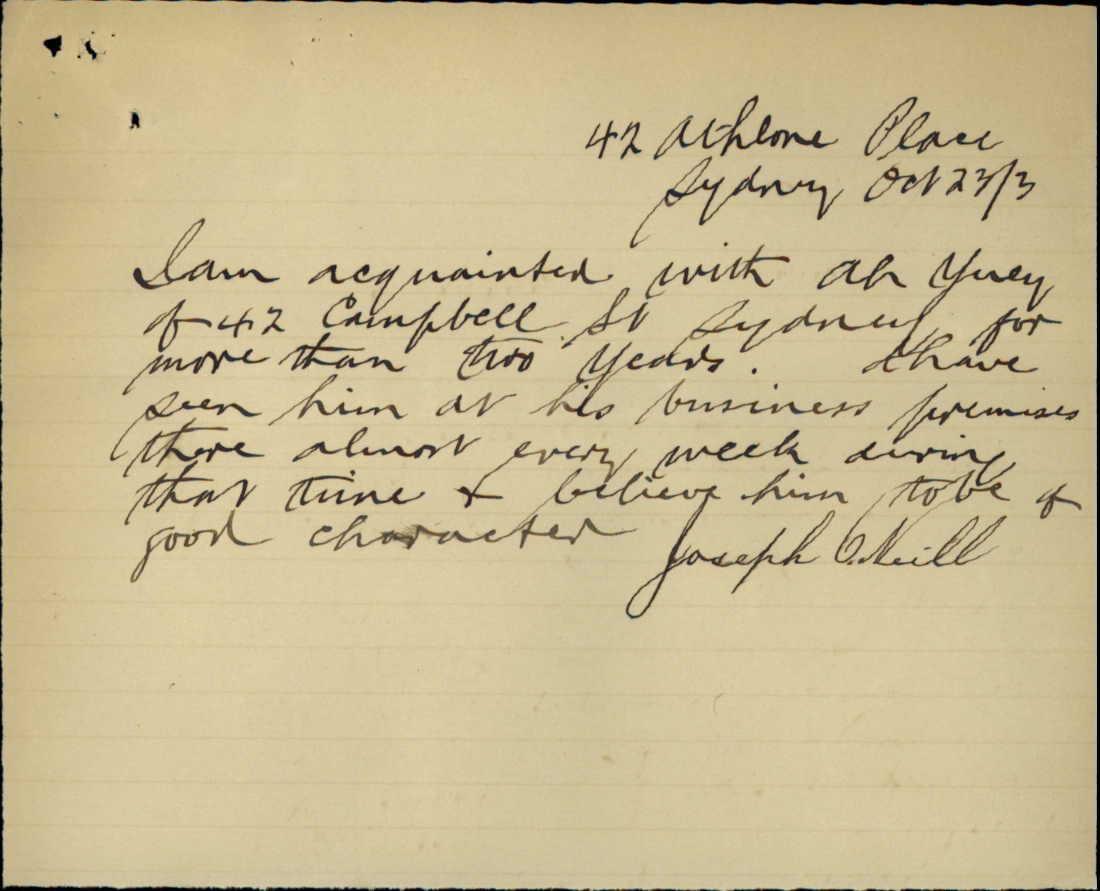 42 Athlone Place
Sydney Oct 23/3
I am acquainted with Ah Yuey
of 42 Campbell St Sydney for
more than two years. I have
seen him at his business premises
there almost every week during
that time & believe him to be of
good character
Joseph O'Neill